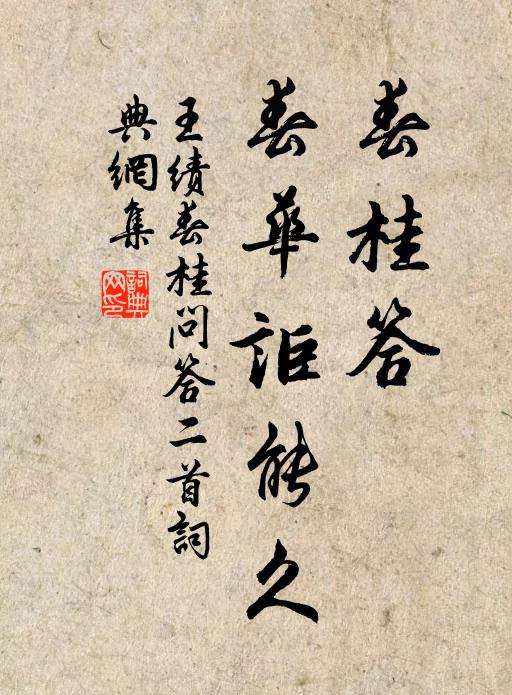 春桂答
春華詎能久
王績春桂問答二首詞
典網集
詞典
网印